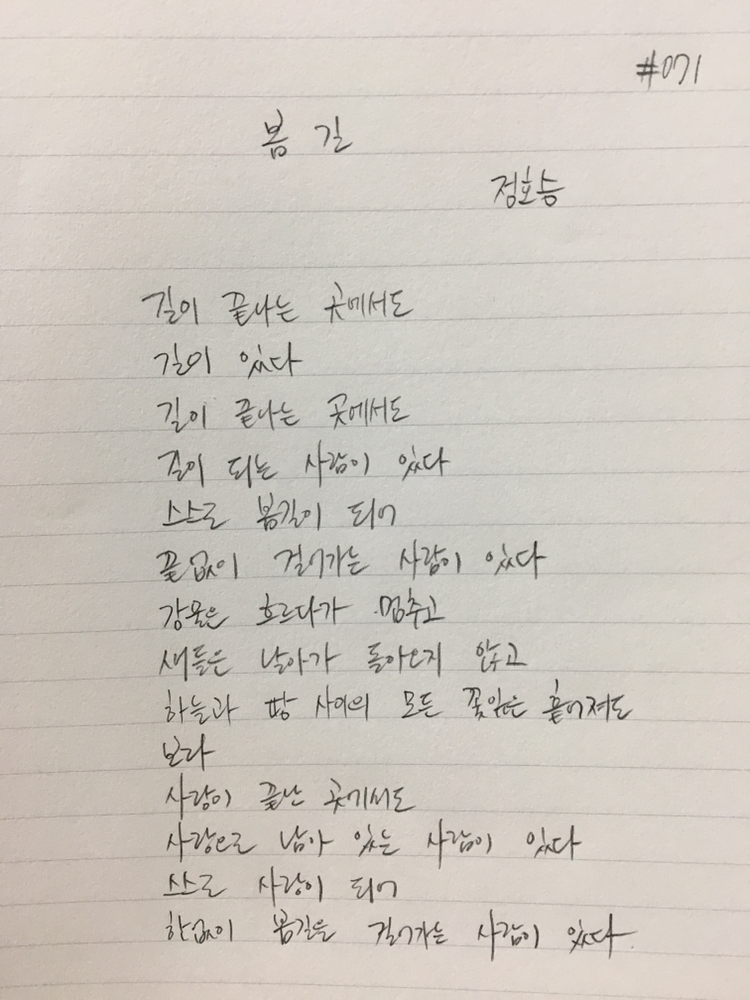 #071
봄 길
정호승
길이 끝나는 곳에서도
길이 있다
길이 끝나는 곳에서도
길이 되는 사람이 있다
스스로 봄길이 되어
끝없이 걸어가는 사람이 있다
강물은 흐르다가 멈추고
새들은 날아가 돌아오지 않고
하늘과 땅 사이의 모든 꽃잎은 흩어져도
보라
사랑이 끝난 곳에서도
사랑으로 남아 있는 사람이 있다
스스로 사랑이 되어
한없이 봄길을 걸어가는 사람이 있다.